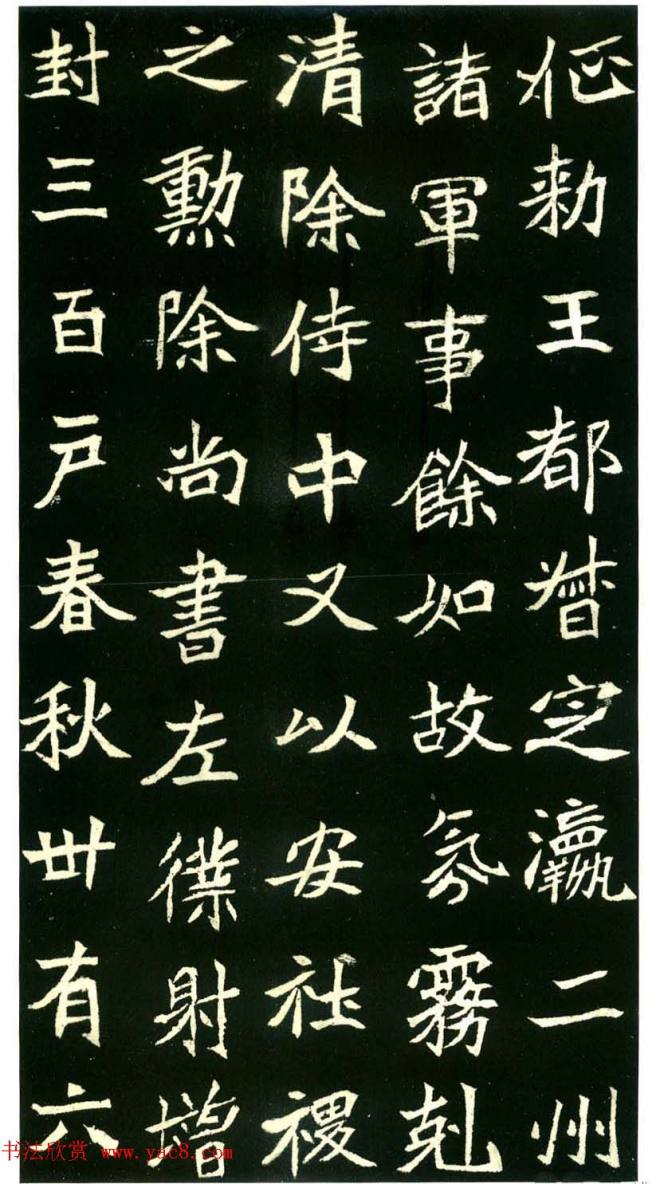 征勅王都督定瀛二州
諸軍事餘如故氛霧剋
清除侍中又以安社稷
之勲除尚書左僕射增
封三百戸春秋卌有六
书法欣赏 www.yac8.com